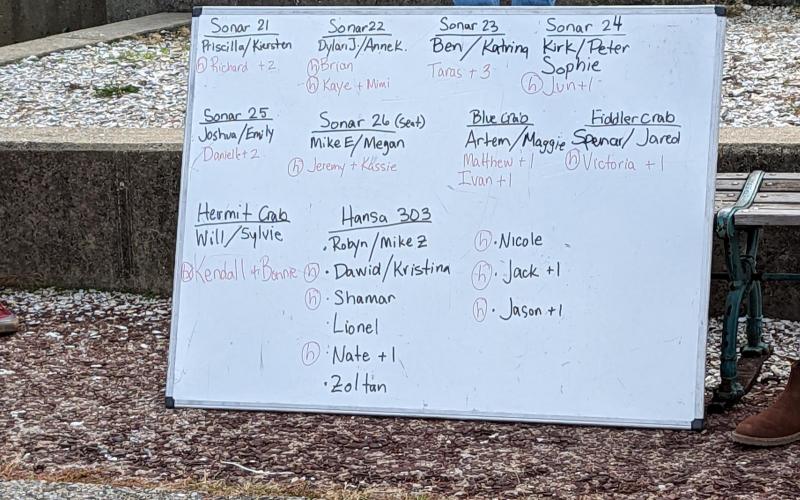 Sonar 21
Priscilla/Kiersten
(h) Richard +2
Sonar 22
Dylan J/Anne K.
(h) Brian
(h) Kaye + Mimi
Sonar 23
Ben/Katrina
Taras + 3
Sonar 24
Kirk/Peter
Sophie
(h) Jun +1
Sonar 25
Joshua/Emily
Danielle + 2
Sonar 26 (Seat)
Mike E/Megan
(h) Jeremy + Kassie
Blue Crab
Artem/Maggie
Matthew +1
Ivan +1
Fiddler Crab
Spencer/Jared
(h) Victoria +1
Hermit Crab
Will/Sylvie
(h) Kendall + Bonnie
Hansa 303
· Robyn/Mike Z
(h) · Dawid/Kristina
(h) · Shamar
· Lionel
(h) · Nate +1
· Zoltan
(h) · Nicole
(h) · Jack +1
(h) · Jason +1